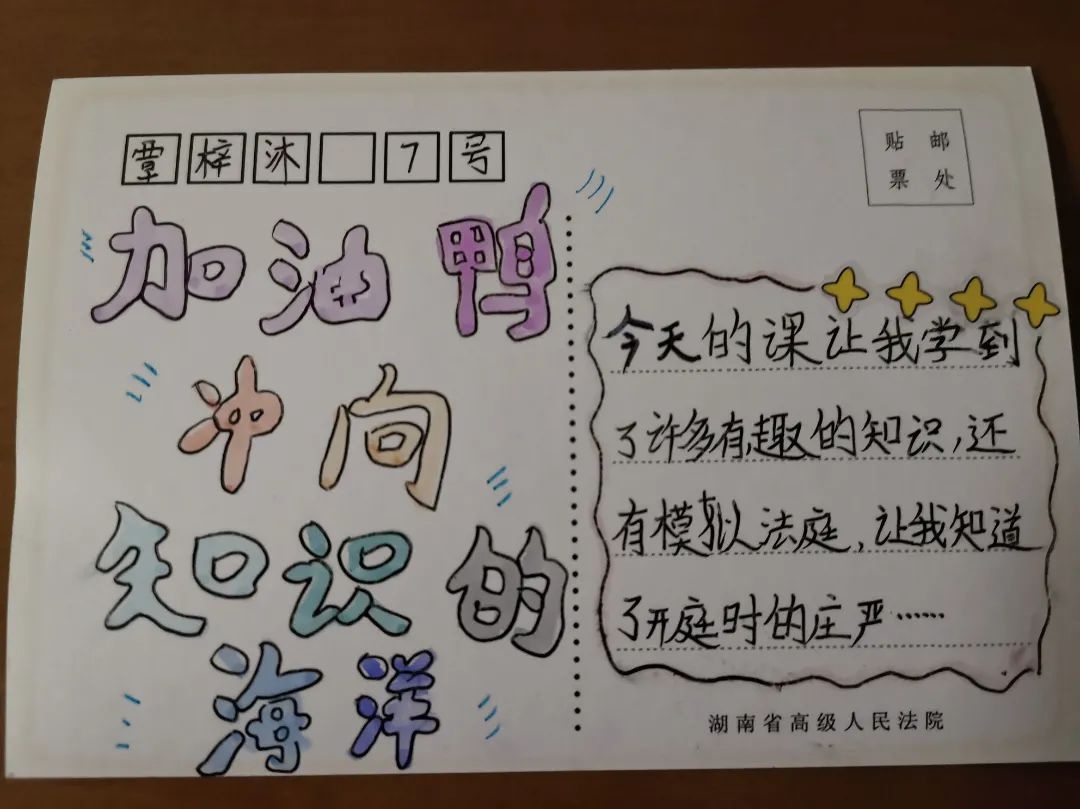 覃梓沐 7号
贴邮
票处
加油鸭
冲向
知识的
海洋
今天的课让我学到
了许多有趣的知识,还
有模拟法庭,让我知道
了开庭时的庄严……
湖南省高级人民法院